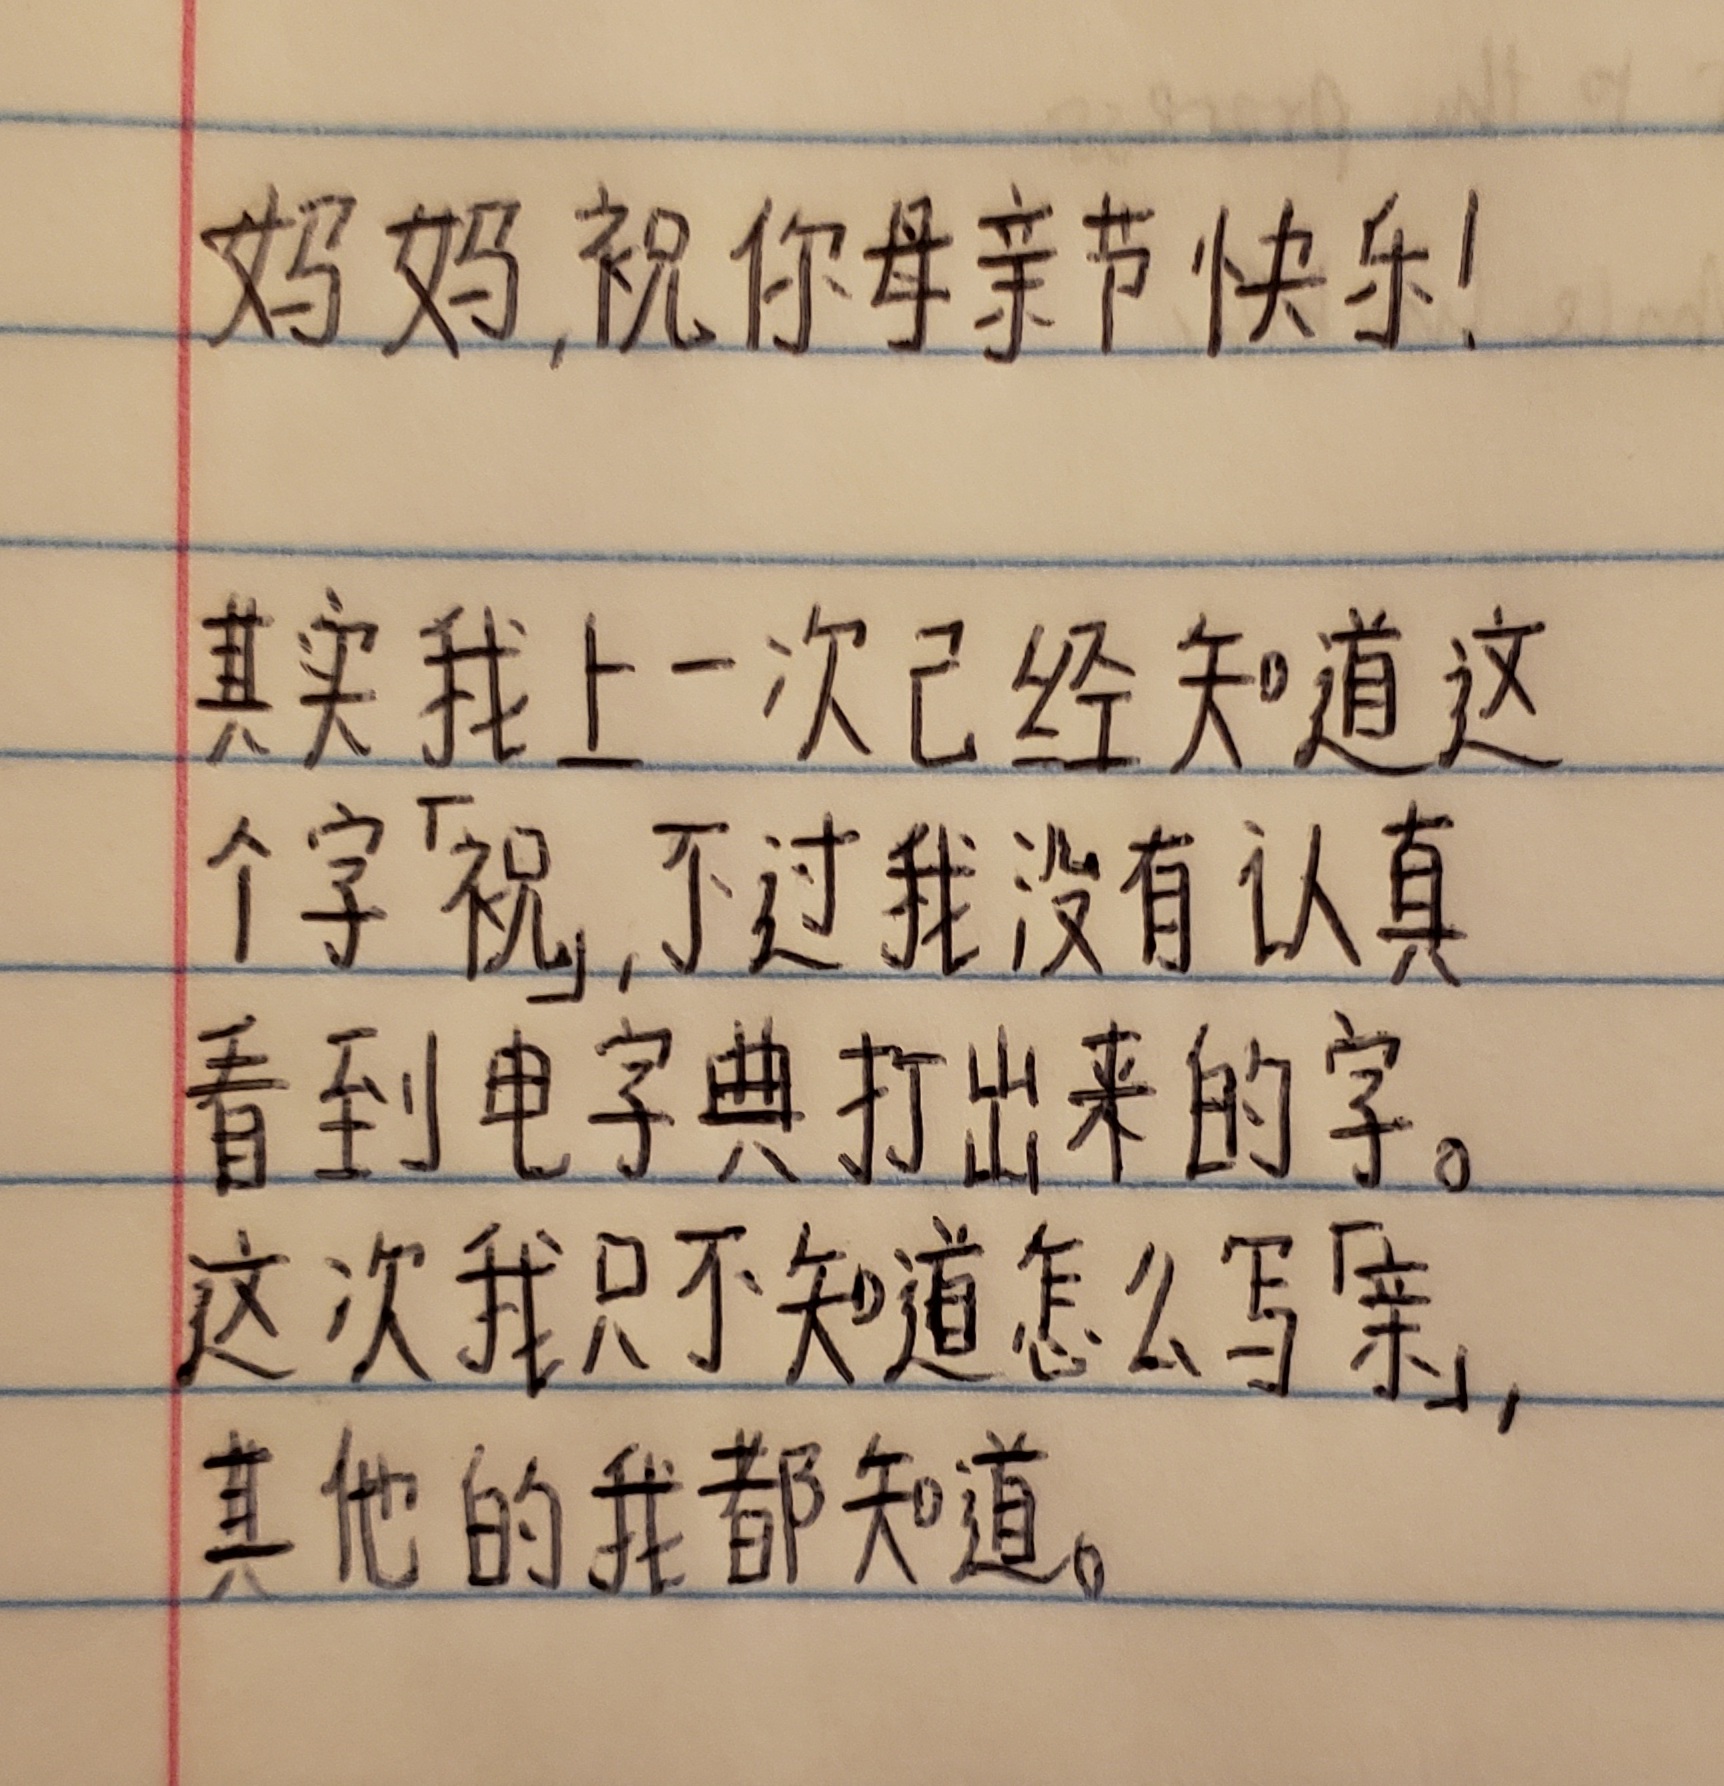 妈妈,祝你母亲节快乐!
其实我上一次己经知道这
个字「祝」,不过我没有认真
看到电字典打出来的字。
这次我只不知道怎么写「亲」,
其他的我都知道。